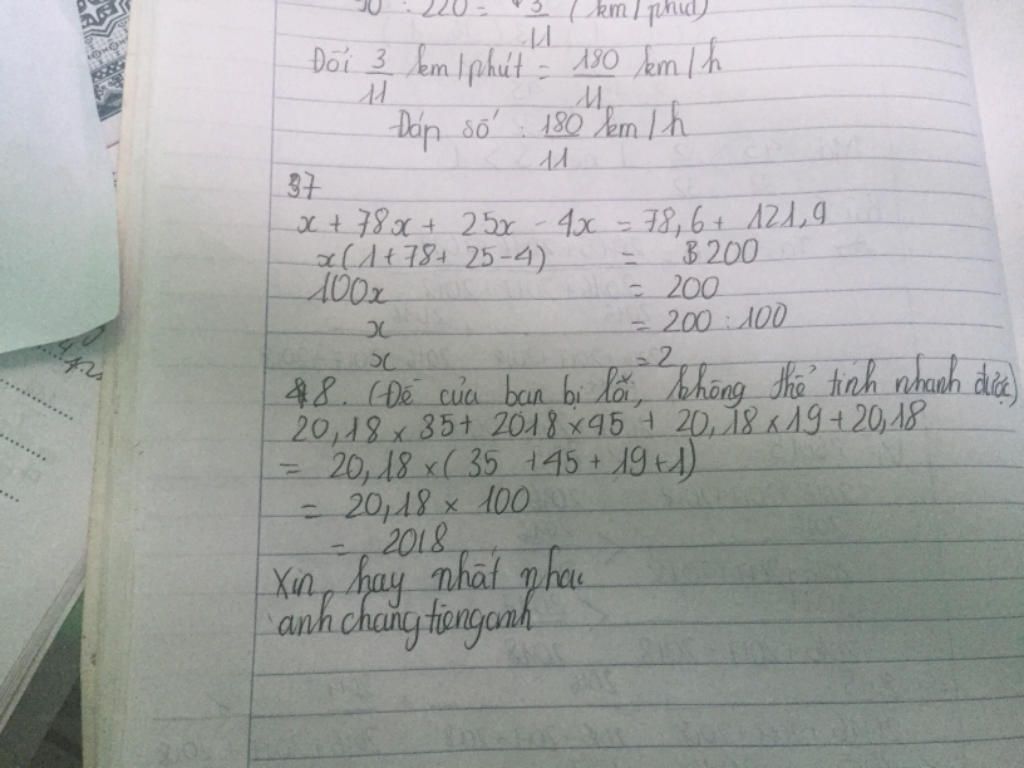 : 220 = 3/11 (km/phút)
Đổi 3/11 km/phút = 180/11 km/h
Đáp số : 180/11 km/h
37
x + 78x + 25x - 4x = 78,6 + 121,9
x(1+78+25-4) = 200
100x = 200
x = 200 : 100
x = 2
8. (Đề của bạn bị lỗi, không thể tính nhanh được)
20,18 x 35 + 2018 x 45 + 20,18 x 19 + 20,18
= 20,18 x (35 + 45 + 19 + 1)
= 20,18 x 100
= 2018
Xin hay nhất nha
anhchangtienganh